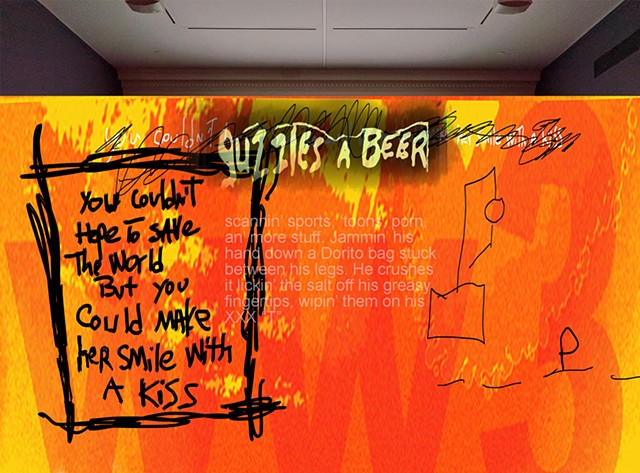 You Couldn't
GUZZLES A BEER
her smile with a kiss
You Couldn't
Hope To SAVE
The World
But you
Could MAKE
heR SMILE WITH
A KISS
scannin' sports, 'toons, porn,
an' more stuff. Jammin' his
hand down a Dorito bag stuck
between his legs. He crushes
it lickin' the salt off his greasy
fingertips, wipin' them on his
XXX "T"
P
WW3